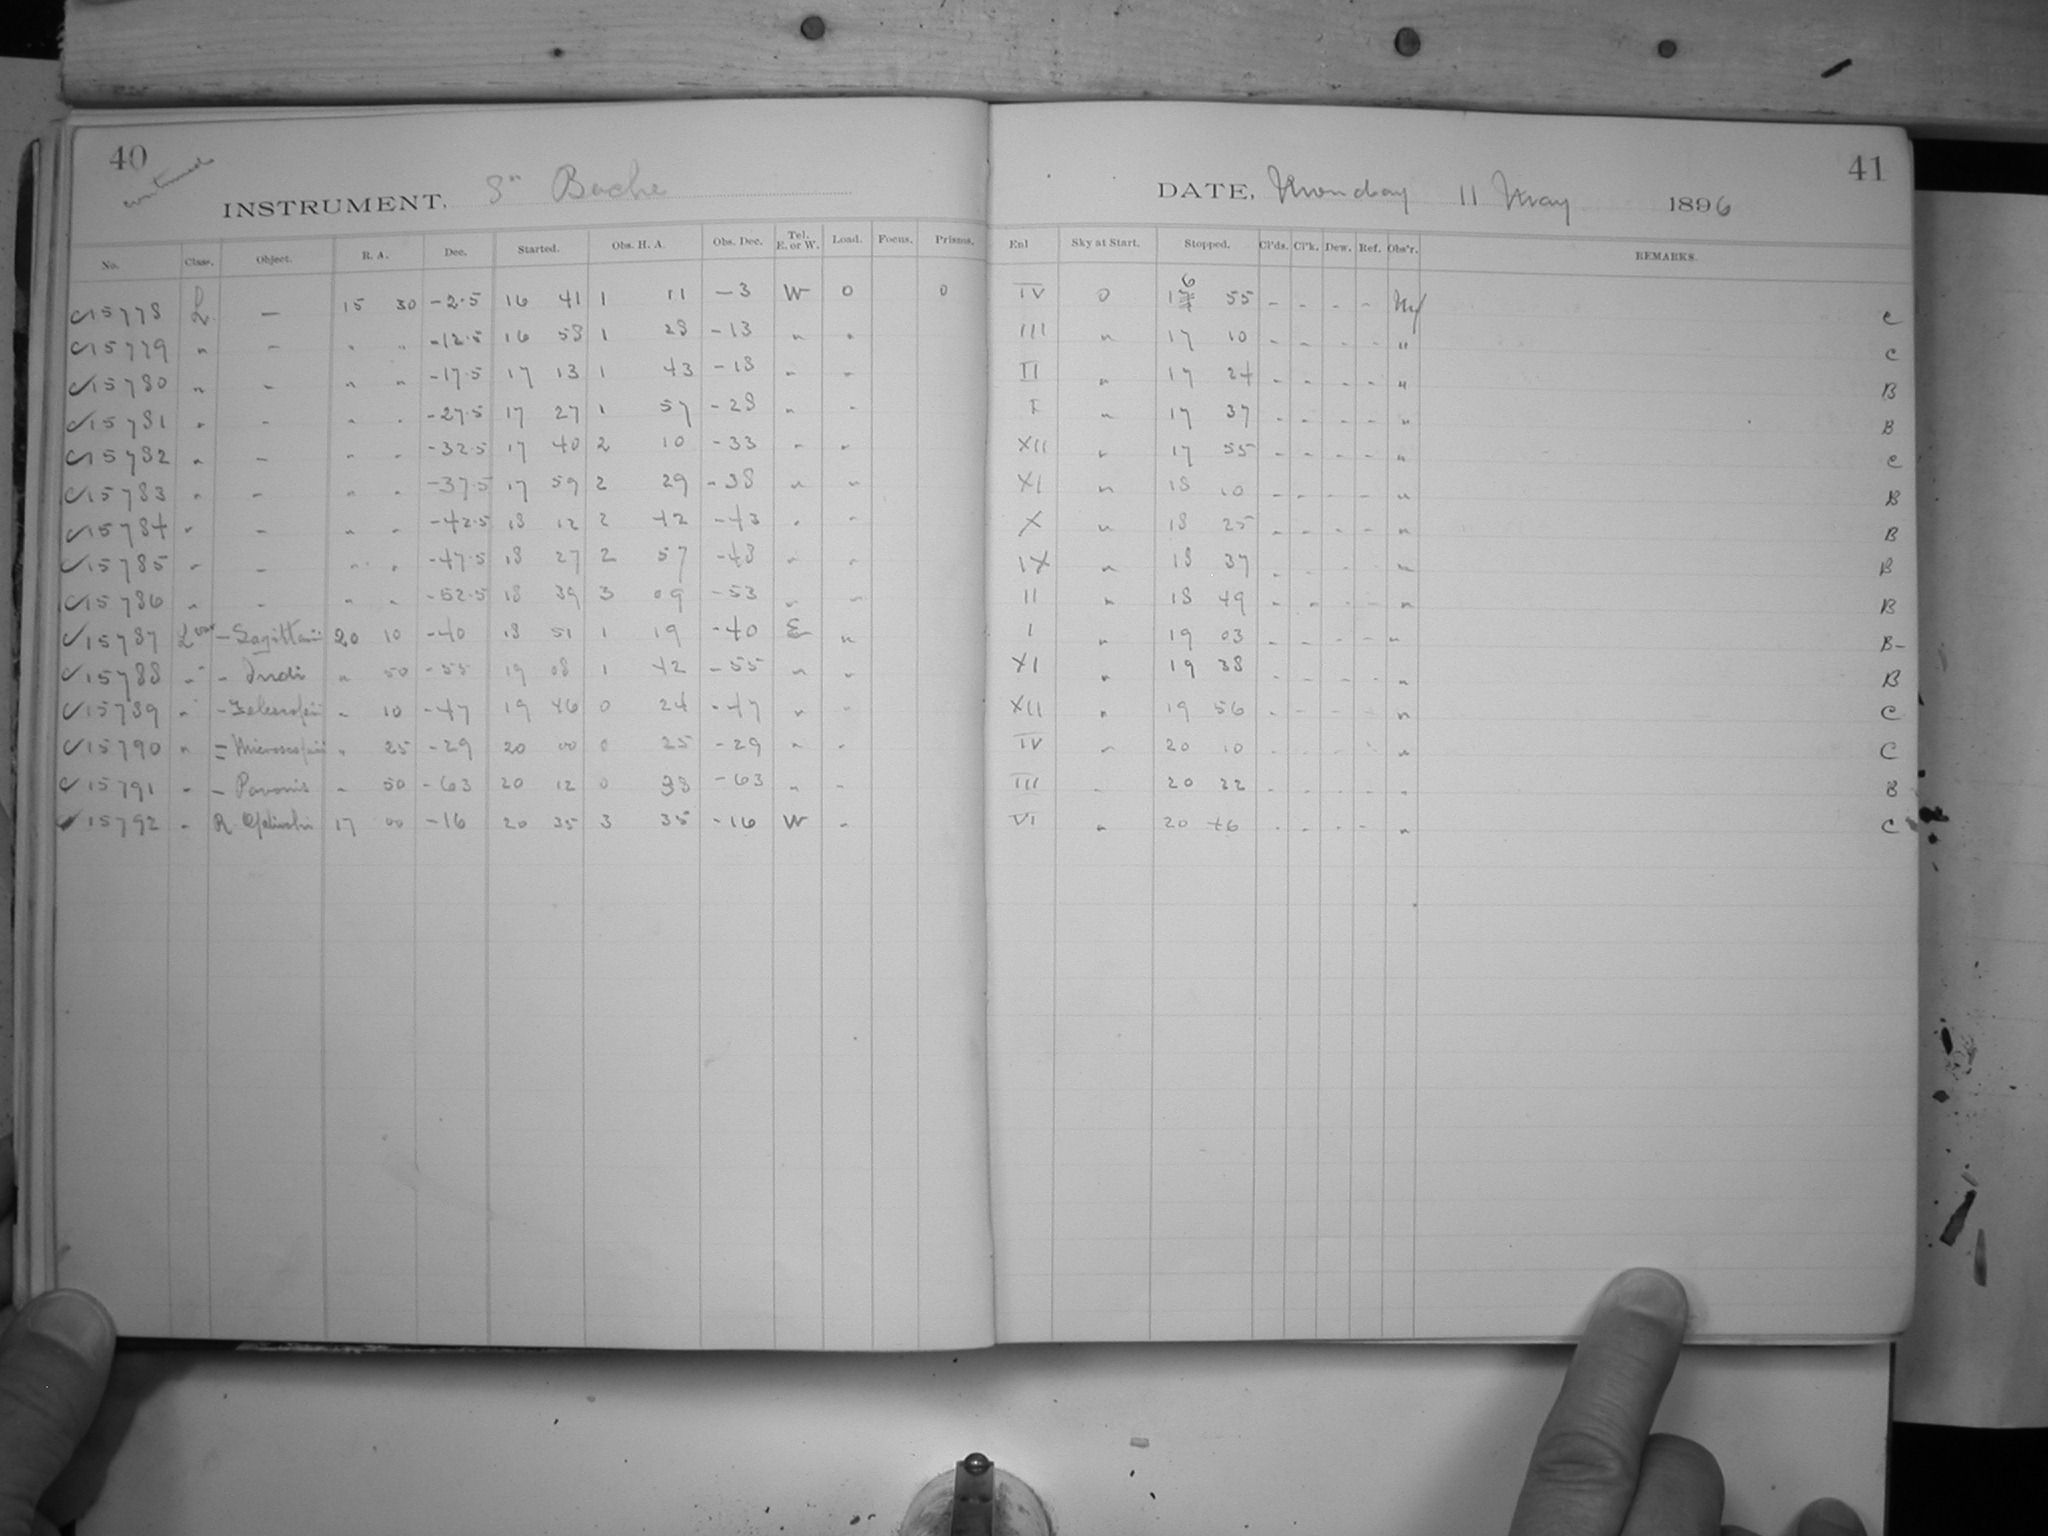 40 41
continued
INSTRUMENT, 8" Bache DATE, Monday 11 May 1896
No. Class. Object. R. A. Dec. Started. Obs. H. A. Obs. Dec. Tel. E. or W. Load. Focus. Prisms. Enl Sky at Start. Stopped. Cl'ds. Cl'k. Dew. Ref. Obs'r. REMARKS.
✓15778 L — 15 30 -2.5 16 41 1 11 -3 W 0 0 IV 0 16 55 - - - - C
✓15779 " - " " -12.5 16 58 1 28 -13 " " III " 17 10 - - - - " C
✓15780 " - " " -17.5 17 13 1 43 -18 " " II " 17 24 - - - - " B
✓15781 " - " " -27.5 17 27 1 57 -28 " " I " 17 37 - - - - " B
✓15782 " - " " -32.5 17 40 2 10 -33 " " XII " 17 55 - - - - " C
✓15783 " - " " -37.5 17 59 2 29 -38 " " XI " 18 10 - - - - " B
✓15784 " - " " -42.5 18 12 2 42 -43 " " X " 18 25 - - - - " B
✓15785 " - " " -47.5 18 27 2 57 -48 " " IX " 18 37 - - - - " B
✓15786 " - " " -52.5 18 39 3 09 -53 " " II " 18 49 - - - - " B
✓15787 L var - Sagittarii 20 10 -40 18 51 1 19 -40 E " I " 19 03 - - - - " B-
✓15788 " " - Indi " 50 -55 19 08 1 42 -55 " " XI " 19 38 - - - - " B
✓15789 " " - Telescopii " 10 -47 19 46 0 24 -47 " " XII " 19 56 - - - - " C
✓15790 " = Microscopii " 25 -29 20 00 0 25 -29 " " IV " 20 10 - - - - " C
✓15791 " - Pavonis " 50 -63 20 12 0 38 -63 " " III " 20 22 - - - - " B
✓15792 " R Ophiuchi 17 00 -16 20 35 3 35 -16 W " VI " 20 46 - - - - " C